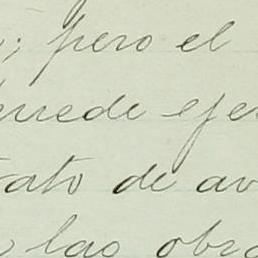 ; pero el
puede eje
trato de av
las obra